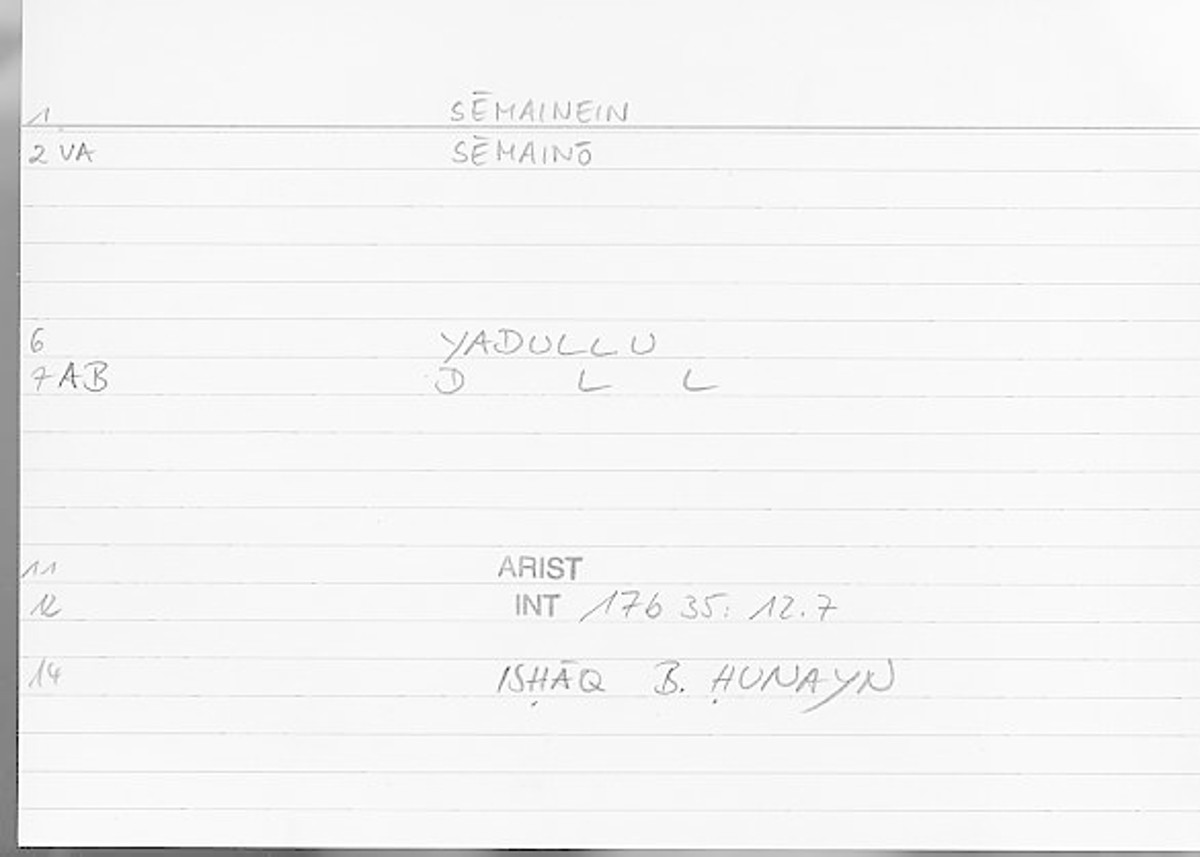 1 SĒMAINEIN
2 VA SĒMAINŌ
6 YADULLU
7 AB D L L
11 ARIST
12 INT 176 35: 12.7
14 ISḤĀQ B. ḤUNAYN